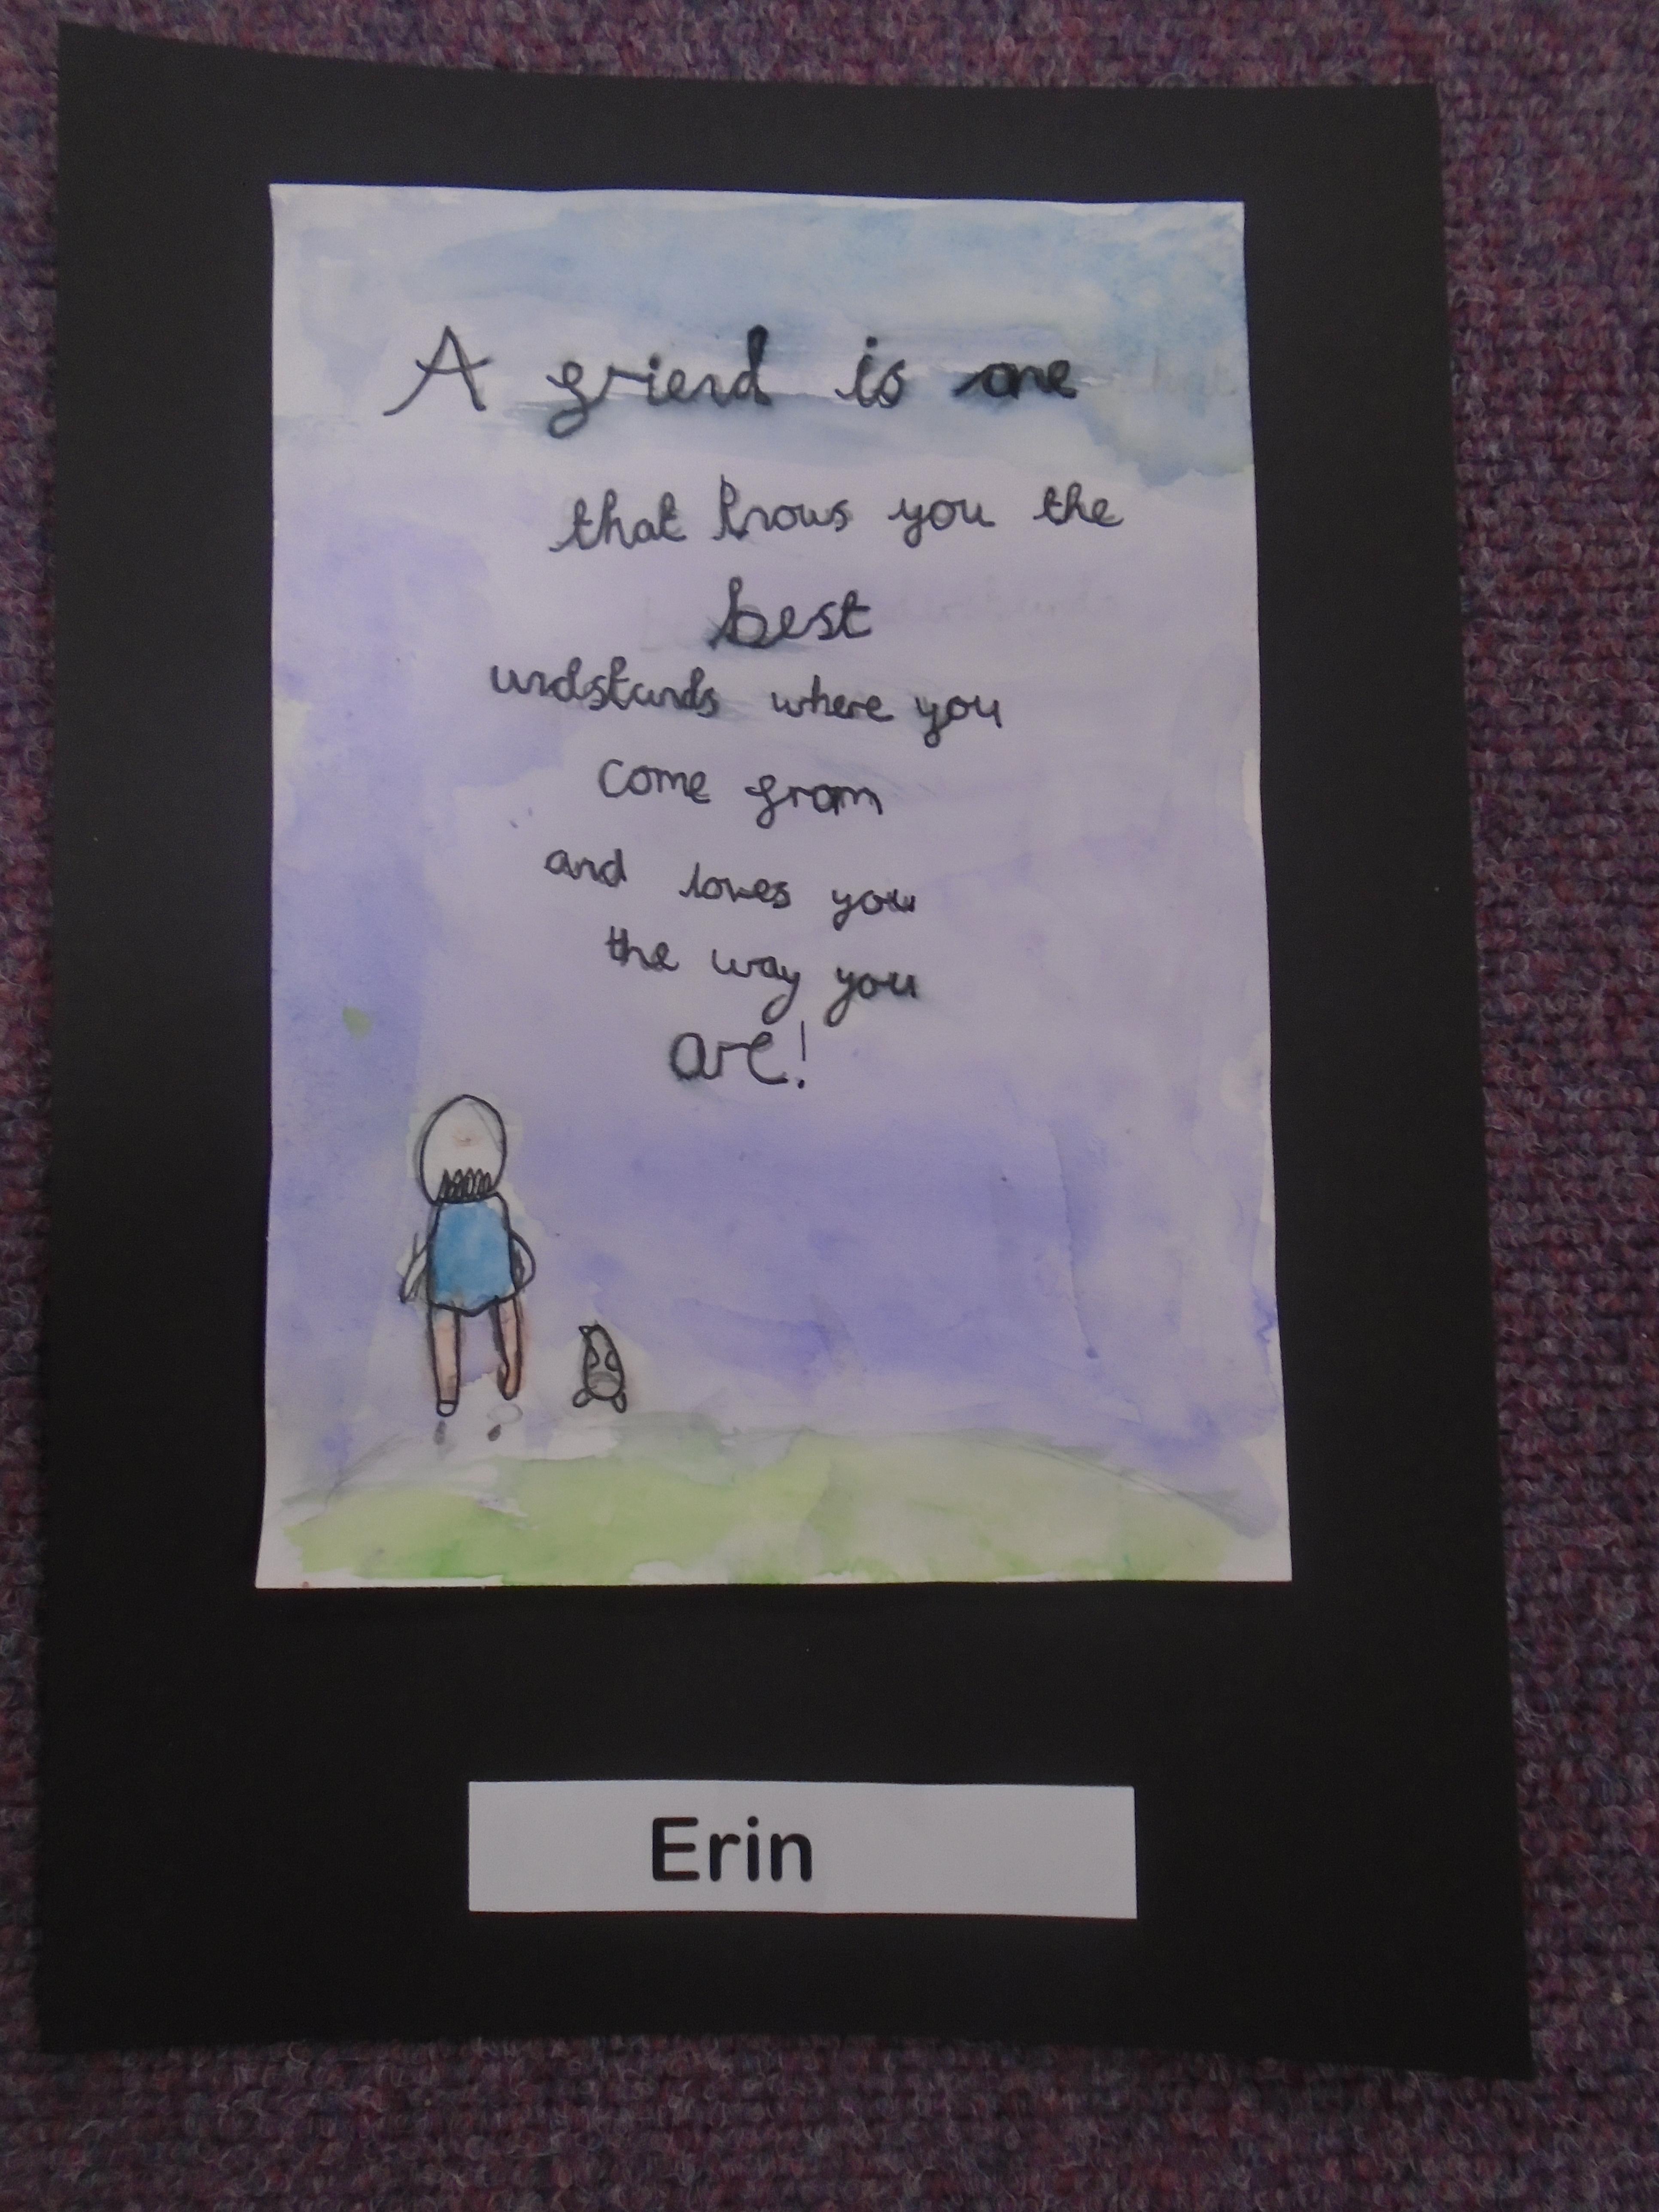 A friend is one
that knows you the
best
undstands where you
come from
and loves you
the way you
are!
Erin